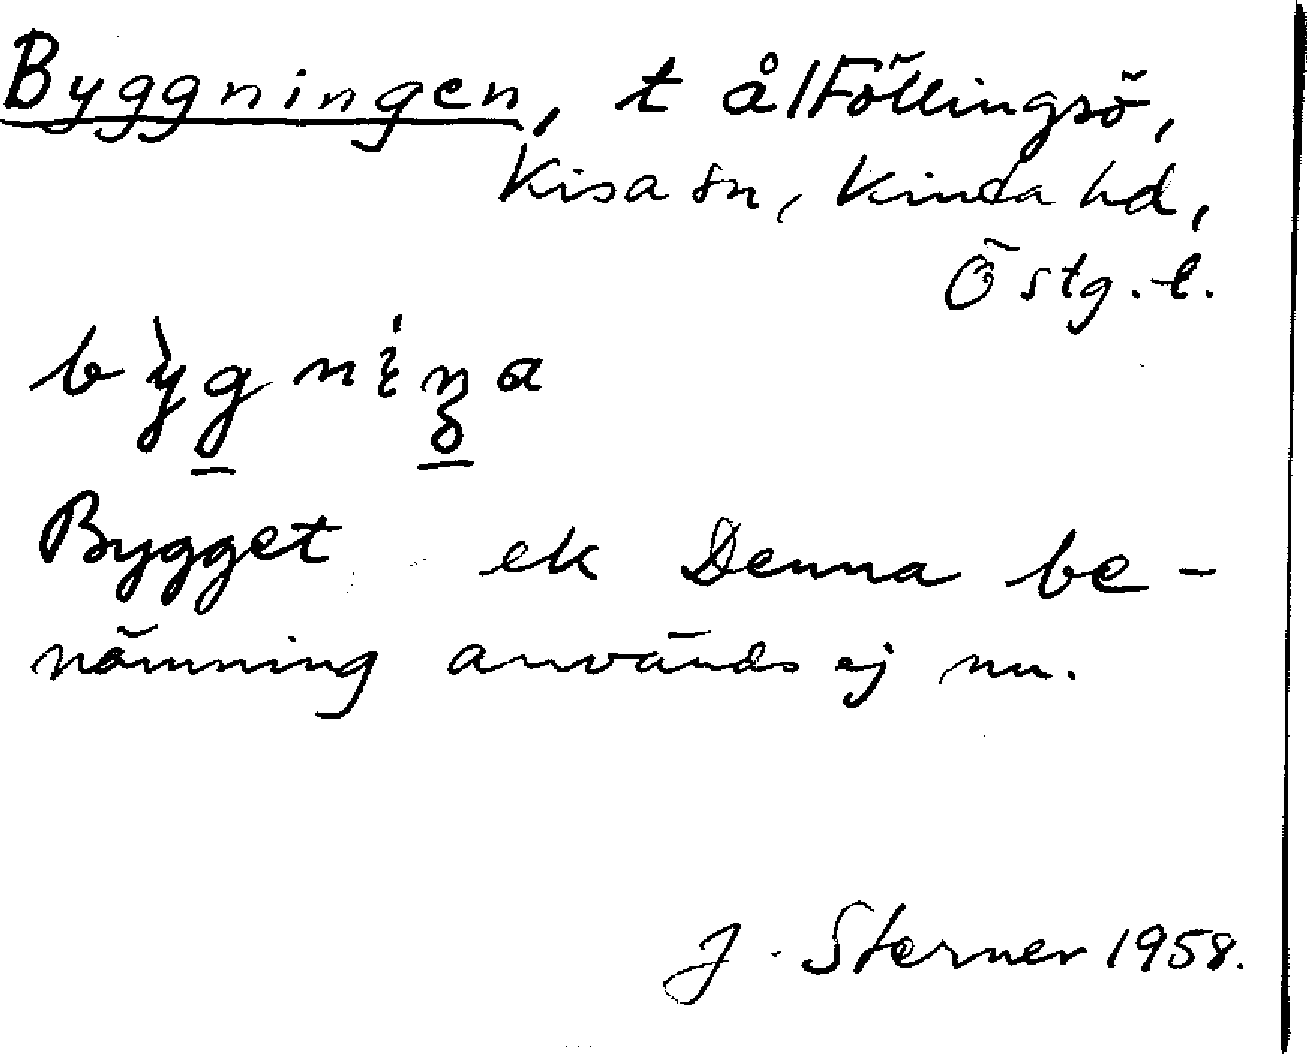 Byggningen, t å 1 Föllingsö,
Kisa sn, Kinda hd,
Östg. l.
Bygget ek Denna be-
nämning används ej nu.
J. Sterner 1958.